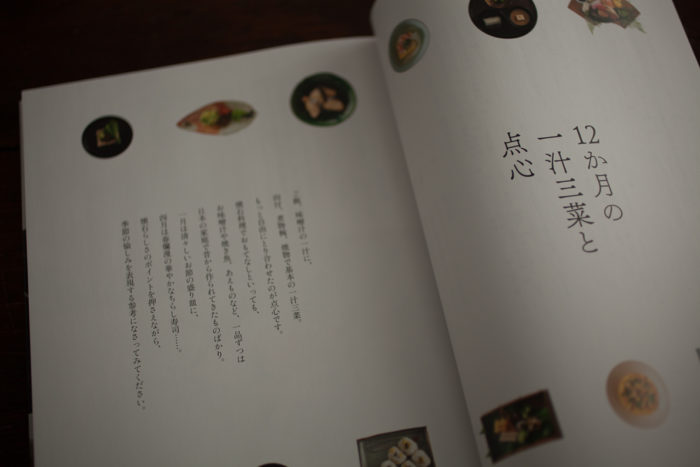 12か月の
一汁三菜と
点心
ご飯、味噌汁の一汁に、
向付、煮物椀、焼物で基本の一汁三菜。
もっと自由にとり合わせたのが点心です。
懐石料理でおもてなしといっても、
お味噌汁や焼き魚、あえものなど、一品ずつは
日本の家庭で昔から作られてきたものばかり。
一月は清々しいお節の盛り皿に、
四月は春爛漫の華やかなちらし寿司……。
懐石らしさのポイントを押さえながら、
季節の愉しみを表現する参考になさってみてください。